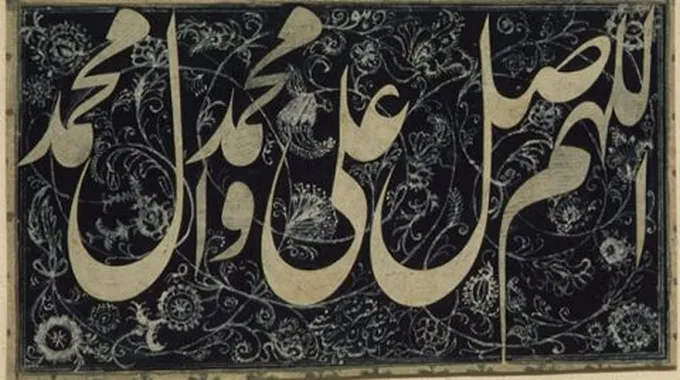 اللهم صل علی محمد وال محمد